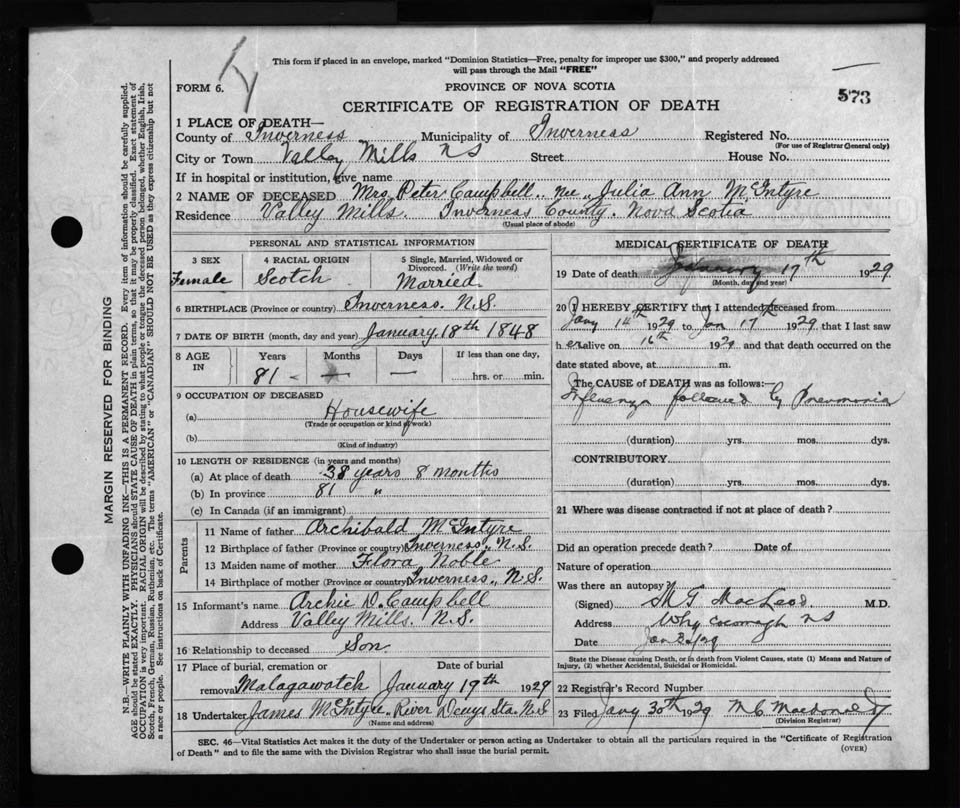 This form if placed in an envelope, marked "Dominion Statistics—Free, penalty for improper use $300," and properly addressed
will pass through the Mail "FREE"
FORM 6.
PROVINCE OF NOVA SCOTIA
573
CERTIFICATE OF REGISTRATION OF DEATH
1 PLACE OF DEATH—
County of Inverness Municipality of Inverness Registered No.
(For use of Registrar General only)
City or Town Valley Mills NS Street House No.
If in hospital or institution, give name
2 NAME OF DECEASED Mrs Peter Campbell. nee, Julia Ann McIntyre
Residence Valley Mills. Inverness County. Nova Scotia
(Usual place of abode)
PERSONAL AND STATISTICAL INFORMATION
3 SEX
Female
4 RACIAL ORIGIN
Scotch
5 Single, Married, Widowed or
Divorced. (Write the word)
Married
6 BIRTHPLACE (Province or country) Inverness. N.S.
7 DATE OF BIRTH (month, day and year) January 18th 1848
8 AGE
IN
Years
81 -
Months
Days
—
If less than one day,
hrs. or min.
9 OCCUPATION OF DECEASED
(a) Housewife
(Trade or occupation or kind of work)
(b)
(Kind of industry)
10 LENGTH OF RESIDENCE (in years and months)
(a) At place of death 38 years 8 months
(b) In province 81 "
(c) In Canada (if an immigrant)
Parents
11 Name of father Archibald McIntyre
12 Birthplace of father (Province or country) Inverness, N.S.
13 Maiden name of mother Flora Noble
14 Birthplace of mother (Province or country) Inverness, N.S.
15 Informant's name Archie D. Campbell
Address Valley Mills. N.S.
16 Relationship to deceased Son
17 Place of burial, cremation or
removal Malagawatch
Date of burial
January 19th 1929
18 Undertaker James McIntyre, River Denys Sta. N.S.
(Name and address)
MEDICAL CERTIFICATE OF DEATH
19 Date of death January 17th 1929
(Month, day and year)
20 I HEREBY CERTIFY that I attended deceased from
Jany 14th 1929 to Jan 17th 1929 that I last saw
h er alive on 16th 1929 and that death occurred on the
date stated above, at m.
The CAUSE of DEATH was as follows:—
Influenza followed by Pneumonia
(duration) yrs. mos. dys.
CONTRIBUTORY
(duration) yrs. mos. dys.
21 Where was disease contracted if not at place of death?
Did an operation precede death? Date of
Nature of operation
Was there an autopsy?
(Signed) MacLeod M.D.
Address Whycocomagh NS
Date Jan 29
State the Disease causing Death, or in death from Violent Causes, state (1) Means and Nature of
Injury, (2) whether Accidental, Suicidal or Homicidal.
22 Registrar's Record Number
23 Filed Jany 30th 1929 M C Macdonald
(Division Registrar)
SEC. 46—Vital Statistics Act makes it the duty of the Undertaker or person acting as Undertaker to obtain all the particulars required in the "Certificate of Registration
of Death" and to file the same with the Division Registrar who shall issue the burial permit.
(OVER)
MARGIN RESERVED FOR BINDING
N.B.—WRITE PLAINLY WITH UNFADING INK—THIS IS A PERMANENT RECORD. Every item of information should be carefully supplied.
AGE should be stated EXACTLY. PHYSICIANS should STATE CAUSE OF DEATH in plain terms, so that it may be properly classified. Exact statement of
OCCUPATION is very important. RACIAL ORIGIN will be described by stating to what people or tongue the deceased person belonged, whether English, Irish,
Scotch, French, German, Russian, Ruthenian, etc. The terms "AMERICAN" or "CANADIAN" SHOULD NOT BE USED as they express citizenship but not
a race or people. See instructions on back of Certificate.